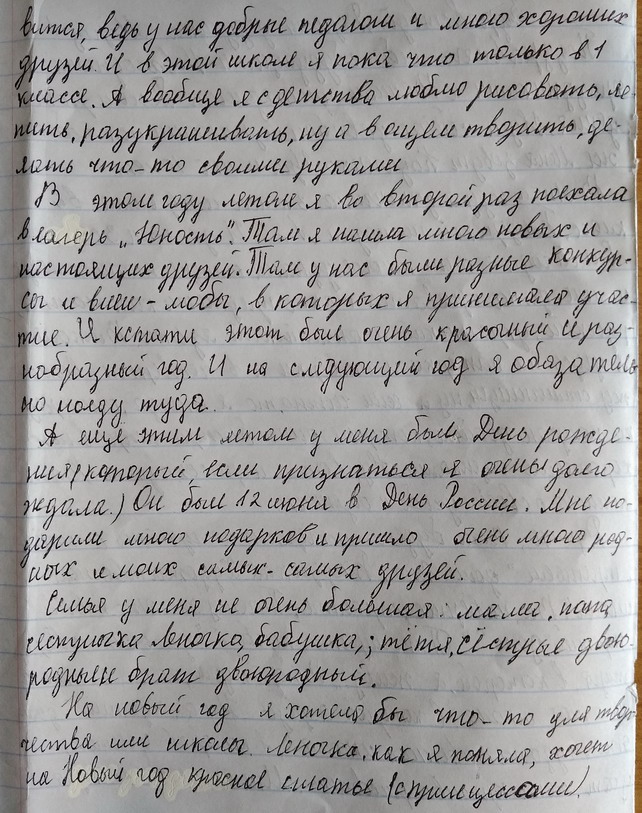 вится, ведь у нас добрые педагоги и много хороших
друзей. И в этой школе я пока что только в 1
классе. А вообще я с детства люблю рисовать, ле-
пить, разукрашивать, ну а в ощем творить, де-
лать что-то своими руками
В этом году летом я во второй раз поехала
в лагерь „Юность". Там я нашла много новых и
настоящих друзей. Там у нас были разные конкур-
сы и , в которых я принимала учас-
тие. И кстати этот был очень красочный и раз-
нобразный год. И на следующий год я обязатель
но поеду туда.
А еще этим летом у меня был День рожде-
ния (который, если признаться я очень долго
ждала.) Он был 12 июня в День России. Мне по-
дарили много подарков и пришло очень много род-
ных и моих самых-самых друзей.
Семья у меня не очень большая: мама, папа
сестрычка Леночка, бабушка,; тётя, сёстры двою-
родные и брат двоюродный.
На новый год я хотела бы что-то для твор-
чества или школы. Леночка, как я поняла, хочет
на Новый год красное платье (с принцессами).